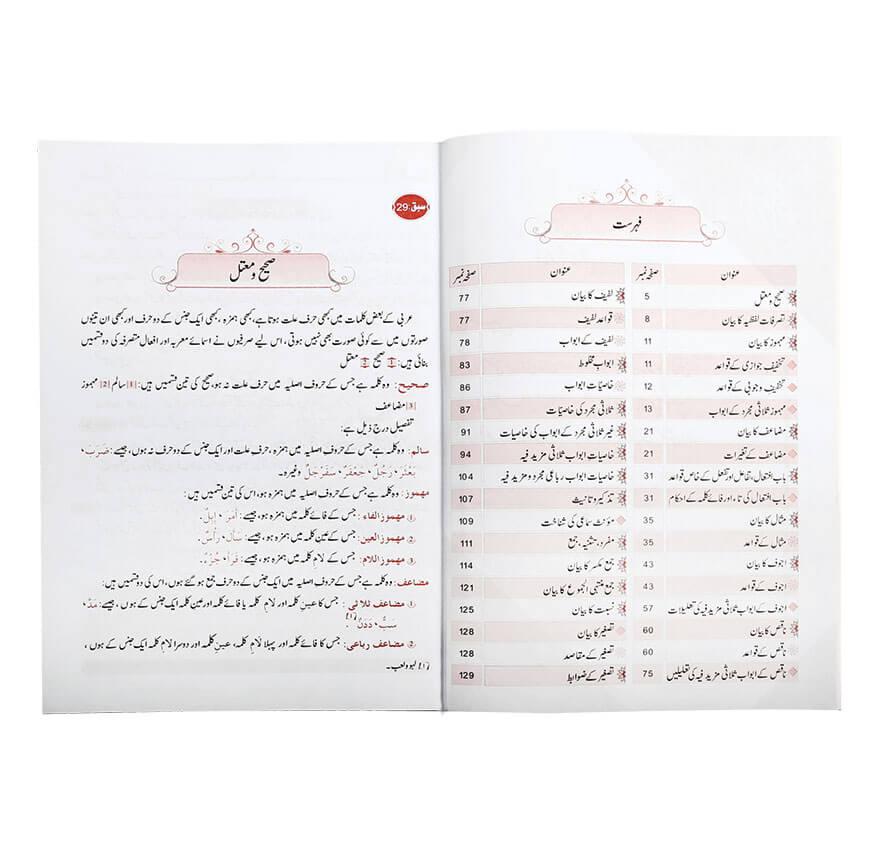 فہرست
عنوان صفحہ نمبر عنوان صفحہ نمبر
صحیح و معتل 5 لفیف کا بیان 77
تصرفات لفظیہ کا بیان 8 قواعد لفیف 77
مہموز کا بیان 11 لفیف کے ابواب 78
تخفیف جوازی کے قواعد 11 ابواب مخلوط 83
تخفیف وجوبی کے قواعد 12 خاصیات ابواب 86
مہموز ثلاثی مجرد کے ابواب 13 ثلاثی مجرد کی خاصیات 87
مضاعف کا بیان 21 غیر ثلاثی مجرد کے ابواب کی خاصیات 91
مضاعف کے تغیرات 21 خاصیات ابواب ثلاثی مزید فیہ 94
باب افتعال، تفاعل اور تفعل کے خاص قواعد 31 خاصیات ابواب رباعی مجرد و مزید فیہ 104
باب افتعال کی تاء اور فائے کلمہ کے احکام 31 تذکیر و تانیث 107
مثال کا بیان 35 مؤنث سماعی کی شناخت 109
مثال کے قواعد 35 مفرد، تثنیہ، جمع 111
اجوف کا بیان 43 جمع مکسر کا بیان 114
اجوف کے قواعد 43 جمع منتہی الجموع کا بیان 121
اجوف کے ابواب ثلاثی مزید فیہ کی تعلیلات 57 نسبت کا بیان 125
ناقص کا بیان 60 تصغیر کا بیان 128
ناقص کے قواعد 60 تصغیر کے مقاصد 128
ناقص کے ابواب ثلاثی مزید فیہ کی تعلیلیں 75 تصغیر کے ضوابط 129
سبق:29
صحیح و معتل
عربی کے بعض کلمات میں کبھی حرف علت ہوتا ہے، کبھی ہمزہ، کبھی ایک جنس کے دو حرف اور کبھی ان تینوں
صورتوں میں سے کوئی صورت بھی نہیں ہوتی، اس لیے صرفیوں نے اسمائے معربہ اور افعال متصرفہ کی دو قسمیں
بنائی ہیں: 1 صحیح 2 معتل
صحیح: وہ کلمہ ہے جس کے حروف اصلیہ میں حرف علت نہ ہو، صحیح کی تین قسمیں ہیں: |1| سالم |2| مہموز
|3| مضاعف
تفصیل درج ذیل ہے:
سالم: وہ کلمہ ہے جس کے حروف اصلیہ میں ہمزہ، حرف علت اور ایک جنس کے دو حرف نہ ہوں، جیسے: ضَرَبَ،
بَعْثَرَ، رَجُلٌ، جَعْفَرٌ، سَفَرْجَلٌ وغیرہ۔
مہموز: وہ کلمہ ہے جس کے حروف اصلیہ میں ہمزہ ہو، اس کی تین قسمیں ہیں:
① مہموز الفاء: جس کے فائے کلمہ میں ہمزہ ہو، جیسے: أَمَرَ، إِبِلٌ.
② مہموز العین: جس کے عین کلمہ میں ہمزہ ہو، جیسے: سَأَلَ، رَأْسٌ.
③ مہموز اللام: جس کے لام کلمہ میں ہمزہ ہو، جیسے: قَرَأَ، جُزْءٌ.
مضاعف: وہ کلمہ ہے جس کے حروف اصلیہ میں ایک جنس کے دو حرف جمع ہو گئے ہوں، اس کی دو قسمیں ہیں:
① مضاعف ثلاثی: جس کا عین کلمہ اور لام کلمہ یا فائے کلمہ اور عین کلمہ ایک جنس کے ہوں، جیسے: مَدَّ،
سَبَبٌ، دَدَنٌ(1)
② مضاعف رباعی: جس کا فائے کلمہ اور پہلا لام کلمہ، عین کلمہ اور دوسرا لام کلمہ ایک جنس کے ہوں،
(1) لہو و لعب۔